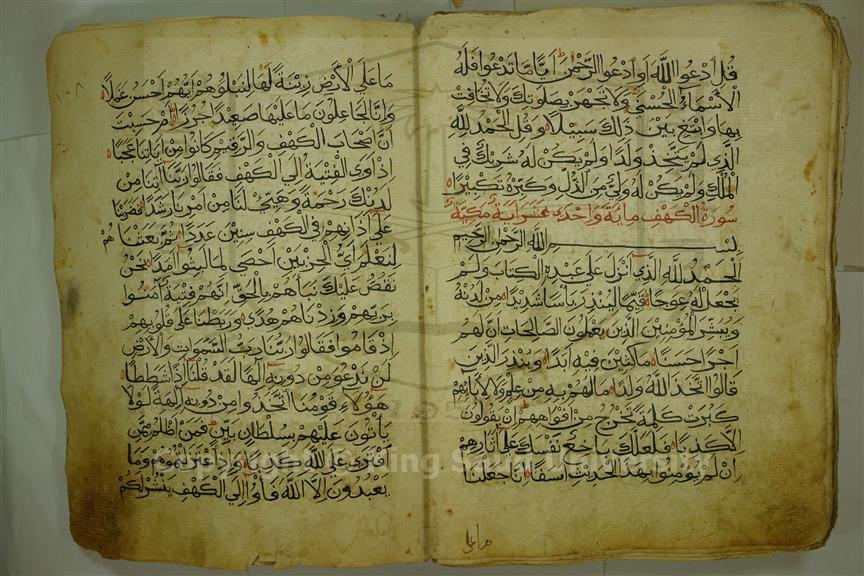 قُلِ ادْعُوا اللَّهَ أَوِ ادْعُوا الرَّحْمَنَ أَيًّا مَّا تَدْعُوا فَلَهُ
الْأَسْمَاءُ الْحُسْنَى وَلَا تَجْهَرْ بِصَلَوتِكَ وَلَا تُخَافِتْ
بِهَا وَابْتَغِ بَيْنَ ذَلِكَ سَبِيلًا وَقُلِ الْحَمْدُ لِلَّهِ
الَّذِي لَمْ يَتَّخِذْ وَلَدًا وَلَمْ يَكُنْ لَهُ شَرِيكٌ فِي
الْمُلْكِ وَلَمْ يَكُنْ لَهُ وَلِيٌّ مِنَ الذُّلِّ وَكَبِّرْهُ تَكْبِيرًا
سُورَةُ الْكَهْفِ مِايَة وَاحْدَى عَشَر ايَة مَكِيَّة
بِسْمِ اللَّهِ الرَّحْمَنِ الرَّحِيمِ
الْحَمْدُ لِلَّهِ الَّذِي أَنْزَلَ عَلَى عَبْدِهِ الْكِتَابَ وَلَمْ
يَجْعَلْ لَهُ عِوَجًا قَيِّمًا لِيُنْذِرَ بَأْسًا شَدِيدًا مِنْ لَدُنْهُ
وَيُبَشِّرَ الْمُؤْمِنِينَ الَّذِينَ يَعْمَلُونَ الصَّالِحَاتِ أَنَّ لَهُمْ
أَجْرًا حَسَنًا مَاكِثِينَ فِيهِ أَبَدًا وَيُنْذِرَ الَّذِينَ
قَالُوا اتَّخَذَ اللَّهُ وَلَدًا مَا لَهُمْ بِهِ مِنْ عِلْمٍ وَلَا لِآبَائِهِمْ
كَبُرَتْ كَلِمَةً تَخْرُجُ مِنْ أَفْوَاهِهِمْ إِنْ يَقُولُونَ
إِلَّا كَذِبًا فَلَعَلَّكَ بَاخِعٌ نَفْسَكَ عَلَى آثَارِهِمْ
إِنْ لَمْ يُؤْمِنُوا بِهَذَا الْحَدِيثِ أَسَفًا إِنَّا جَعَلْنَا
ما على
١٠٨
مَا عَلَى الْأَرْضِ زِينَةً لَهَا لِنَبْلُوَهُمْ أَيُّهُمْ أَحْسَنُ عَمَلًا
وَإِنَّا لَجَاعِلُونَ مَا عَلَيْهَا صَعِيدًا جُرُزًا أَمْ حَسِبْتَ
أَنَّ أَصْحَابَ الْكَهْفِ وَالرَّقِيمِ كَانُوا مِنْ آيَاتِنَا عَجَبًا
إِذْ أَوَى الْفِتْيَةُ إِلَى الْكَهْفِ فَقَالُوا رَبَّنَا آتِنَا مِنْ
لَدُنْكَ رَحْمَةً وَهَيِّئْ لَنَا مِنْ أَمْرِنَا رَشَدًا فَضَرَبْنَا
عَلَى آذَانِهِمْ فِي الْكَهْفِ سِنِينَ عَدَدًا ثُمَّ بَعَثْنَاهُمْ
لِنَعْلَمَ أَيُّ الْحِزْبَيْنِ أَحْصَى لِمَا لَبِثُوا أَمَدًا نَحْنُ
نَقُصُّ عَلَيْكَ نَبَأَهُمْ بِالْحَقِّ إِنَّهُمْ فِتْيَةٌ آمَنُوا
بِرَبِّهِمْ وَزِدْنَاهُمْ هُدًى وَرَبَطْنَا عَلَى قُلُوبِهِمْ
إِذْ قَامُوا فَقَالُوا رَبُّنَا رَبُّ السَّمَوَاتِ وَالْأَرْضِ
لَنْ نَدْعُوَ مِنْ دُونِهِ إِلَهًا لَقَدْ قُلْنَا إِذًا شَطَطًا
هَؤُلَاءِ قَوْمُنَا اتَّخَذُوا مِنْ دُونِهِ آلِهَةً لَوْلَا
يَأْتُونَ عَلَيْهِمْ بِسُلْطَانٍ بَيِّنٍ فَمَنْ أَظْلَمُ مِمَّنِ
افْتَرَى عَلَى اللَّهِ كَذِبًا وَإِذِ اعْتَزَلْتُمُوهُمْ وَمَا
يَعْبُدُونَ إِلَّا اللَّهَ فَأْوُوا إِلَى الْكَهْفِ يَنْشُرْ لَكُمْ